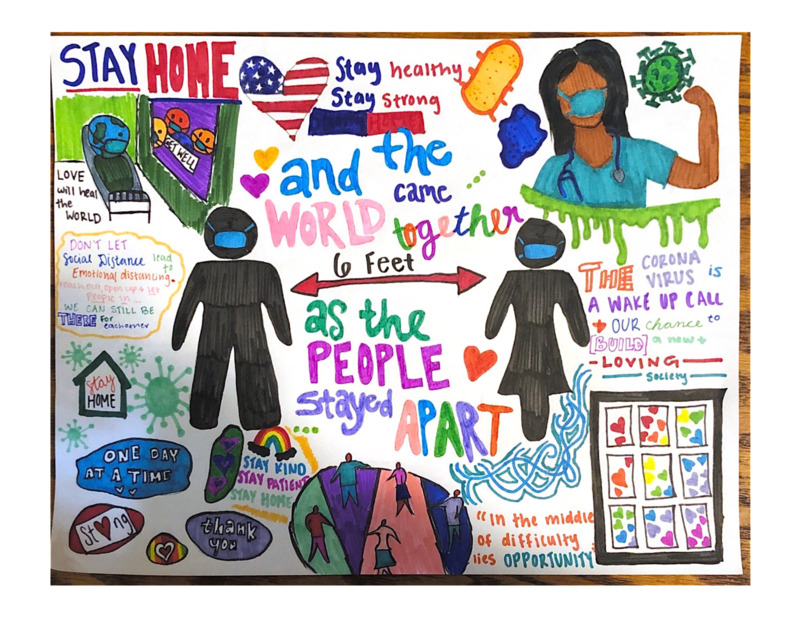 STAY HOME
Stay healthy
Stay Strong
GET WELL
LOVE
will heal
the
WORLD
and the
WORLD came
together
6 Feet
as the
PEOPLE
stayed
APART
DON'T LET
Social Distance lead
to
Emotional distancing.
reach out, open up & let
People in...
WE CAN STILL BE
THERE for
eachother
THE CORONA
VIRUS is
A WAKE UP CALL
OUR chance to
[BUILD] a new +
-LOVING
Society
Stay
HOME
ONE DAY
AT A TIME
STAY KIND
STAY PATIENT
STAY HOME
St ng
thank
you
"In the middle
of difficulty
lies OPPORTUNITY